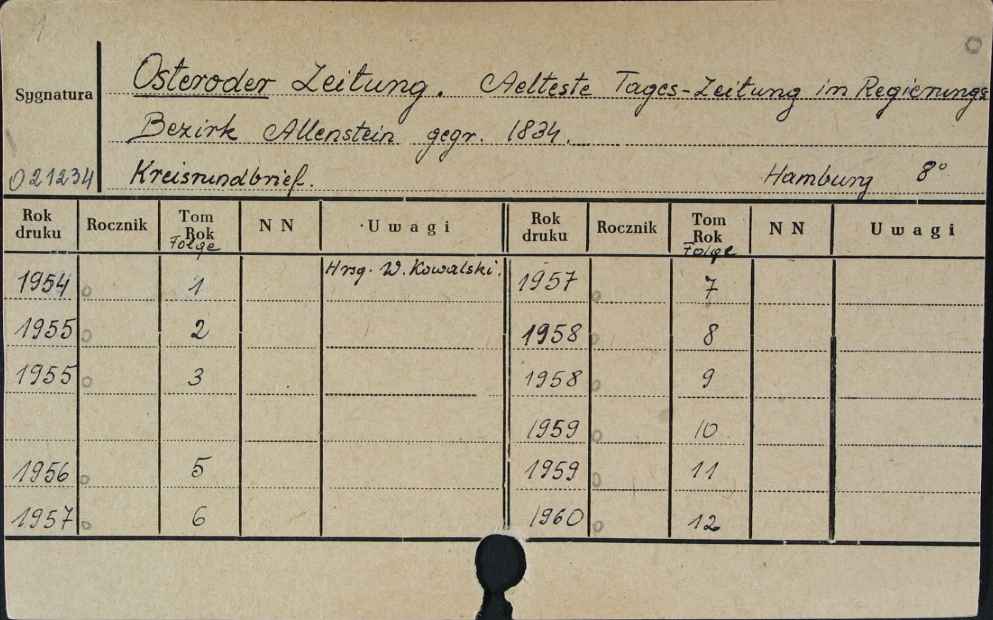 Sygnatura
Osteroder Zeitung. Aelteste Tages-Zeitung in Regierungs
Bezirk Allenstein gegr. 1834.
021234 Kreisrundbrief. Hamburg 8°
Rok druku Rocznik Tom Rok Folge N N Uwagi Rok druku Rocznik Tom Rok Folge N N Uwagi
1954 1 Hrsg. W. Kowalski. 1957 7
1955 2 1958 8
1955 3 1958 9
1959 10
1956 5 1959 11
1957 6 1960 12